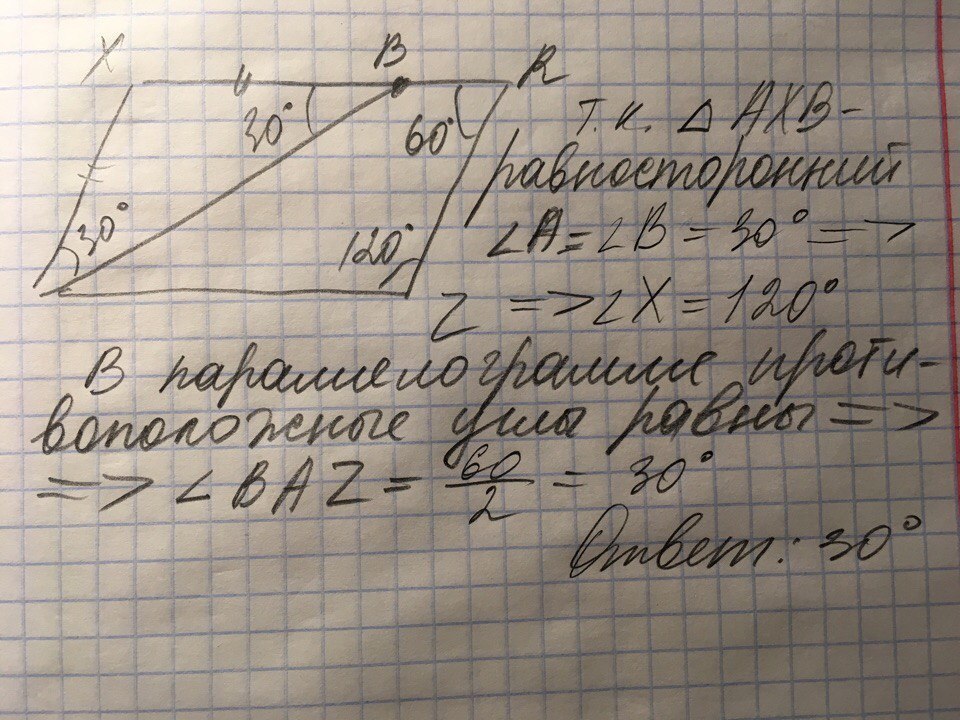 X B R
30° 60°
30° 120°
Z
т.к. △ AXB -
равносторонний
∠A = ∠B = 30° =>
=> ∠X = 120°
В параллелограмме проти-
воположные углы равны =>
=> ∠BAZ = 60/2 = 30°
Ответ: 30°